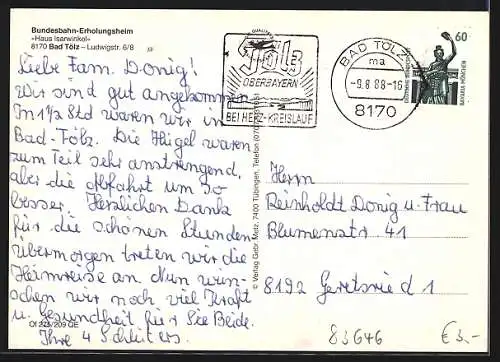 Bundesbahn-Erholungsheim
»Haus Isarwinkel«
8170 Bad Tölz – Ludwigstr. 6/8
Liebe Fam. Donig!
Wir sind gut angekommen
In 1½ Std waren wir in
Bad-Tölz. Die Hügel waren
zum Teil sehr anstrengend,
aber die Abfahrt um so
besser. Herzlichen Dank
für die schönen Stunden
Übermorgen treten wir die
Heimreise an Nun wün-
schen wir noch viel Kraft
u. Gesundheit für Sie Beide.
Ihre 4 Schlüters.
Ol 223/209 GE
© Verlag Gebr. Metz, 7400 Tübingen, Telefon
TÖLZ
OBERBAYERN
BEI HERZ-KREISLAUF
BAD TÖLZ
ma
-9.8.88-16
8170
60
BAVARIA MÜNCHEN
Herrn
Reinholdt Donig u. Frau
Blumenstr 41
8192 Geretsried 1
83646
€ 3.-